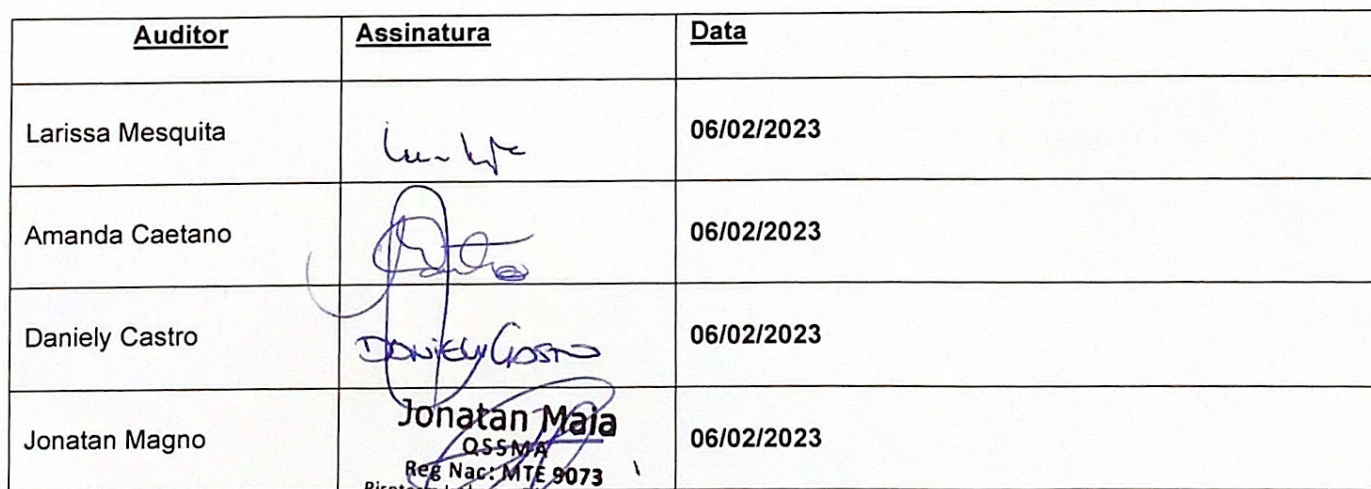 Auditor Assinatura Data
Larissa Mesquita 06/02/2023
Amanda Caetano 06/02/2023
Daniely Castro DANIELY CASTRO 06/02/2023
Jonatan Maia
Jonatan Magno 06/02/2023
QSSMA
Reg Nac: MTE 9073